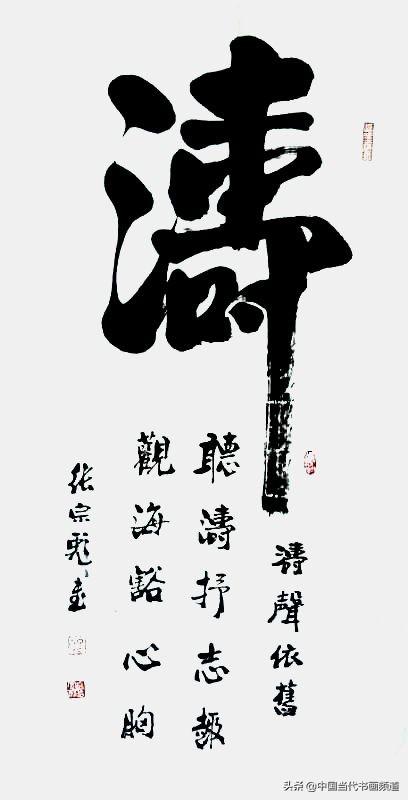 濤
濤聲依舊
聽濤抒志趣
觀海豁心胸
张宗彪書
头条 @中国当代书画频道